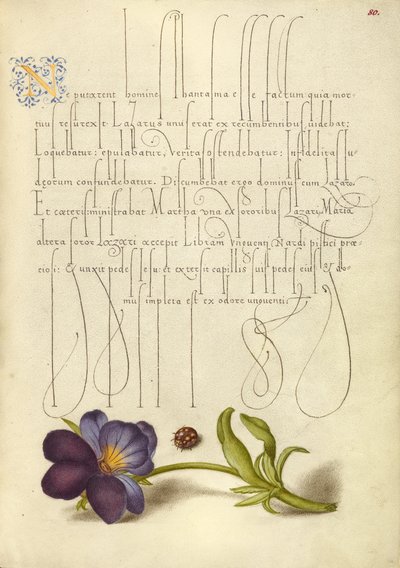 80.
Ne putarent homines phantasma esse factum quia mor-
tuus resurexit Lazarus unus erat ex recumbentibus uidebat:
Loquebatur: epulabatur, Veritas ostendebatur: infidelitas Iu-
dæorum confundebatur. Discumbebat ergo dominus cum Lazaro
Et cæteri: ministrabat Martha una ex sororibus Lazari. Maria
altera soror Lazari accepit Libram Vnguenti Nardi pistici præ-
ciosi: & unxit pedes Iesu: et extersit capillis suis pedes eius & do-
mus impleta est ex odore unguenti: